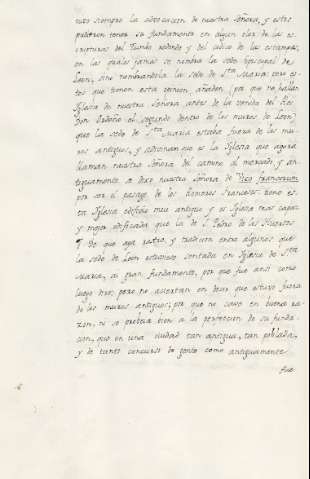 tuvo siempre la advocacion de nuestra Señora, y estos
pudieron tener su fundamento en algun clax de las es-
cripturas del Tumbo redondo y del codice de las estampas,
en las quales jamas se nombra la sede episcopal de
Leon, sino nombrandola la sede de Sta Maria: pero es-
tos que tienen esta opinion, añaden (por que no hallan
Iglesia de nuestra Señora antes de la venida del Rey
Don Ordoño el segundo dentro de los muros de Leon)
que la sede de Sta Maria estaba fuera de los mu-
ros antiguos, y adivinan que es la Iglesia que agora
llaman nuestra Señora del camino al mercado, y an-
tiguamente a dixo nuestra Señora de Vico francorum
por ser el pasage de los hombres franceses: tiene es-
ta Iglesia edificio muy antiguo y es Iglesia mas capaz
y mejor edificada que la de S. Pedro de los Huertos
Y de que aya rastro, y tradicion entre algunos que
la sede de Leon estuviese sentada en Iglesia de Sta
Maria, ai gran fundamento, por que fue ansi como
luego dire; pero no aciertan en decir que estuvo fuera
de los muros antiguos; por que no cave en buena ra-
zon, ni se prueba bien a la perfeccion de su funda-
cion, que en una ciudad tan antigua, tan poblada,
y de tanto concurso de gente como antiguamente
fue